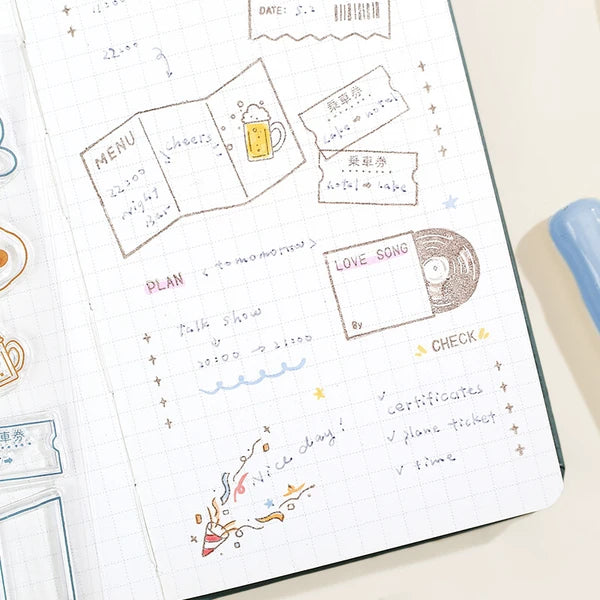 DATE: 5.2
22:00
MENU
cheers
22:00
night
Bar
乗車券
Lake ⇒ hotel
乗車券
hotel ⇒ Lake
PLAN
< tomomorrow >
talk show
20:00 → 21:00
LOVE SONG
By
CHECK
✓ certificates
✓ plane ticket
✓ time
Nice day!
車券